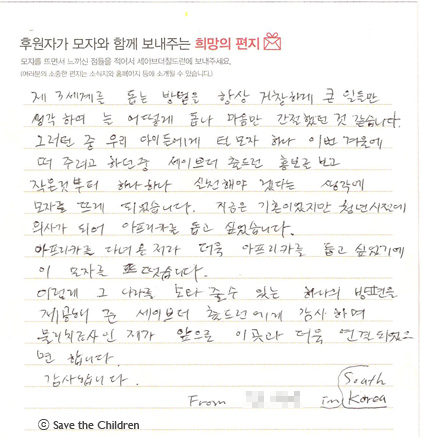 후원자가 모자와 함께 보내주는 희망의 편지
모자를 뜨면서 느끼신 점들을 적어서 세이브더칠드런에 보내주세요.
(여러분의 소중한 편지는 소식지와 홈페이지 등에 소개될 수 있습니다.)
제 3세계를 돕는 방법을 항상 거창하게 큰 일들만
생각하여 는 어떻게 돕나 마음만 간절했던 것 같습니다.
그러던 중 우리 아이들에게 털모자 하나 이번 겨울에
떠 주려고 하던 중 세이브더 칠드런 홍보를 보고
작은것부터 하나하나 실천해야 겠다는 생각에
모자를 뜨게 되었습니다. 지금은 기혼이었지만 청년시절에
의사가 되어 아프리카를 돕고 싶었습니다.
아프리카로 다녀온 저라 더욱 아프리카를 돕고 싶었기에
이 모자를 떴습니다.
이렇게 그 나라를 도와 줄수 있는 하나의 방편을
제공해 준 세이브더 칠드런에게 감사하며
물리치료사인 제가 앞으로 이곳과 더욱 연결되었으
면 합니다.
감사합니다.
From in South Korea
ⓒ Save the Children